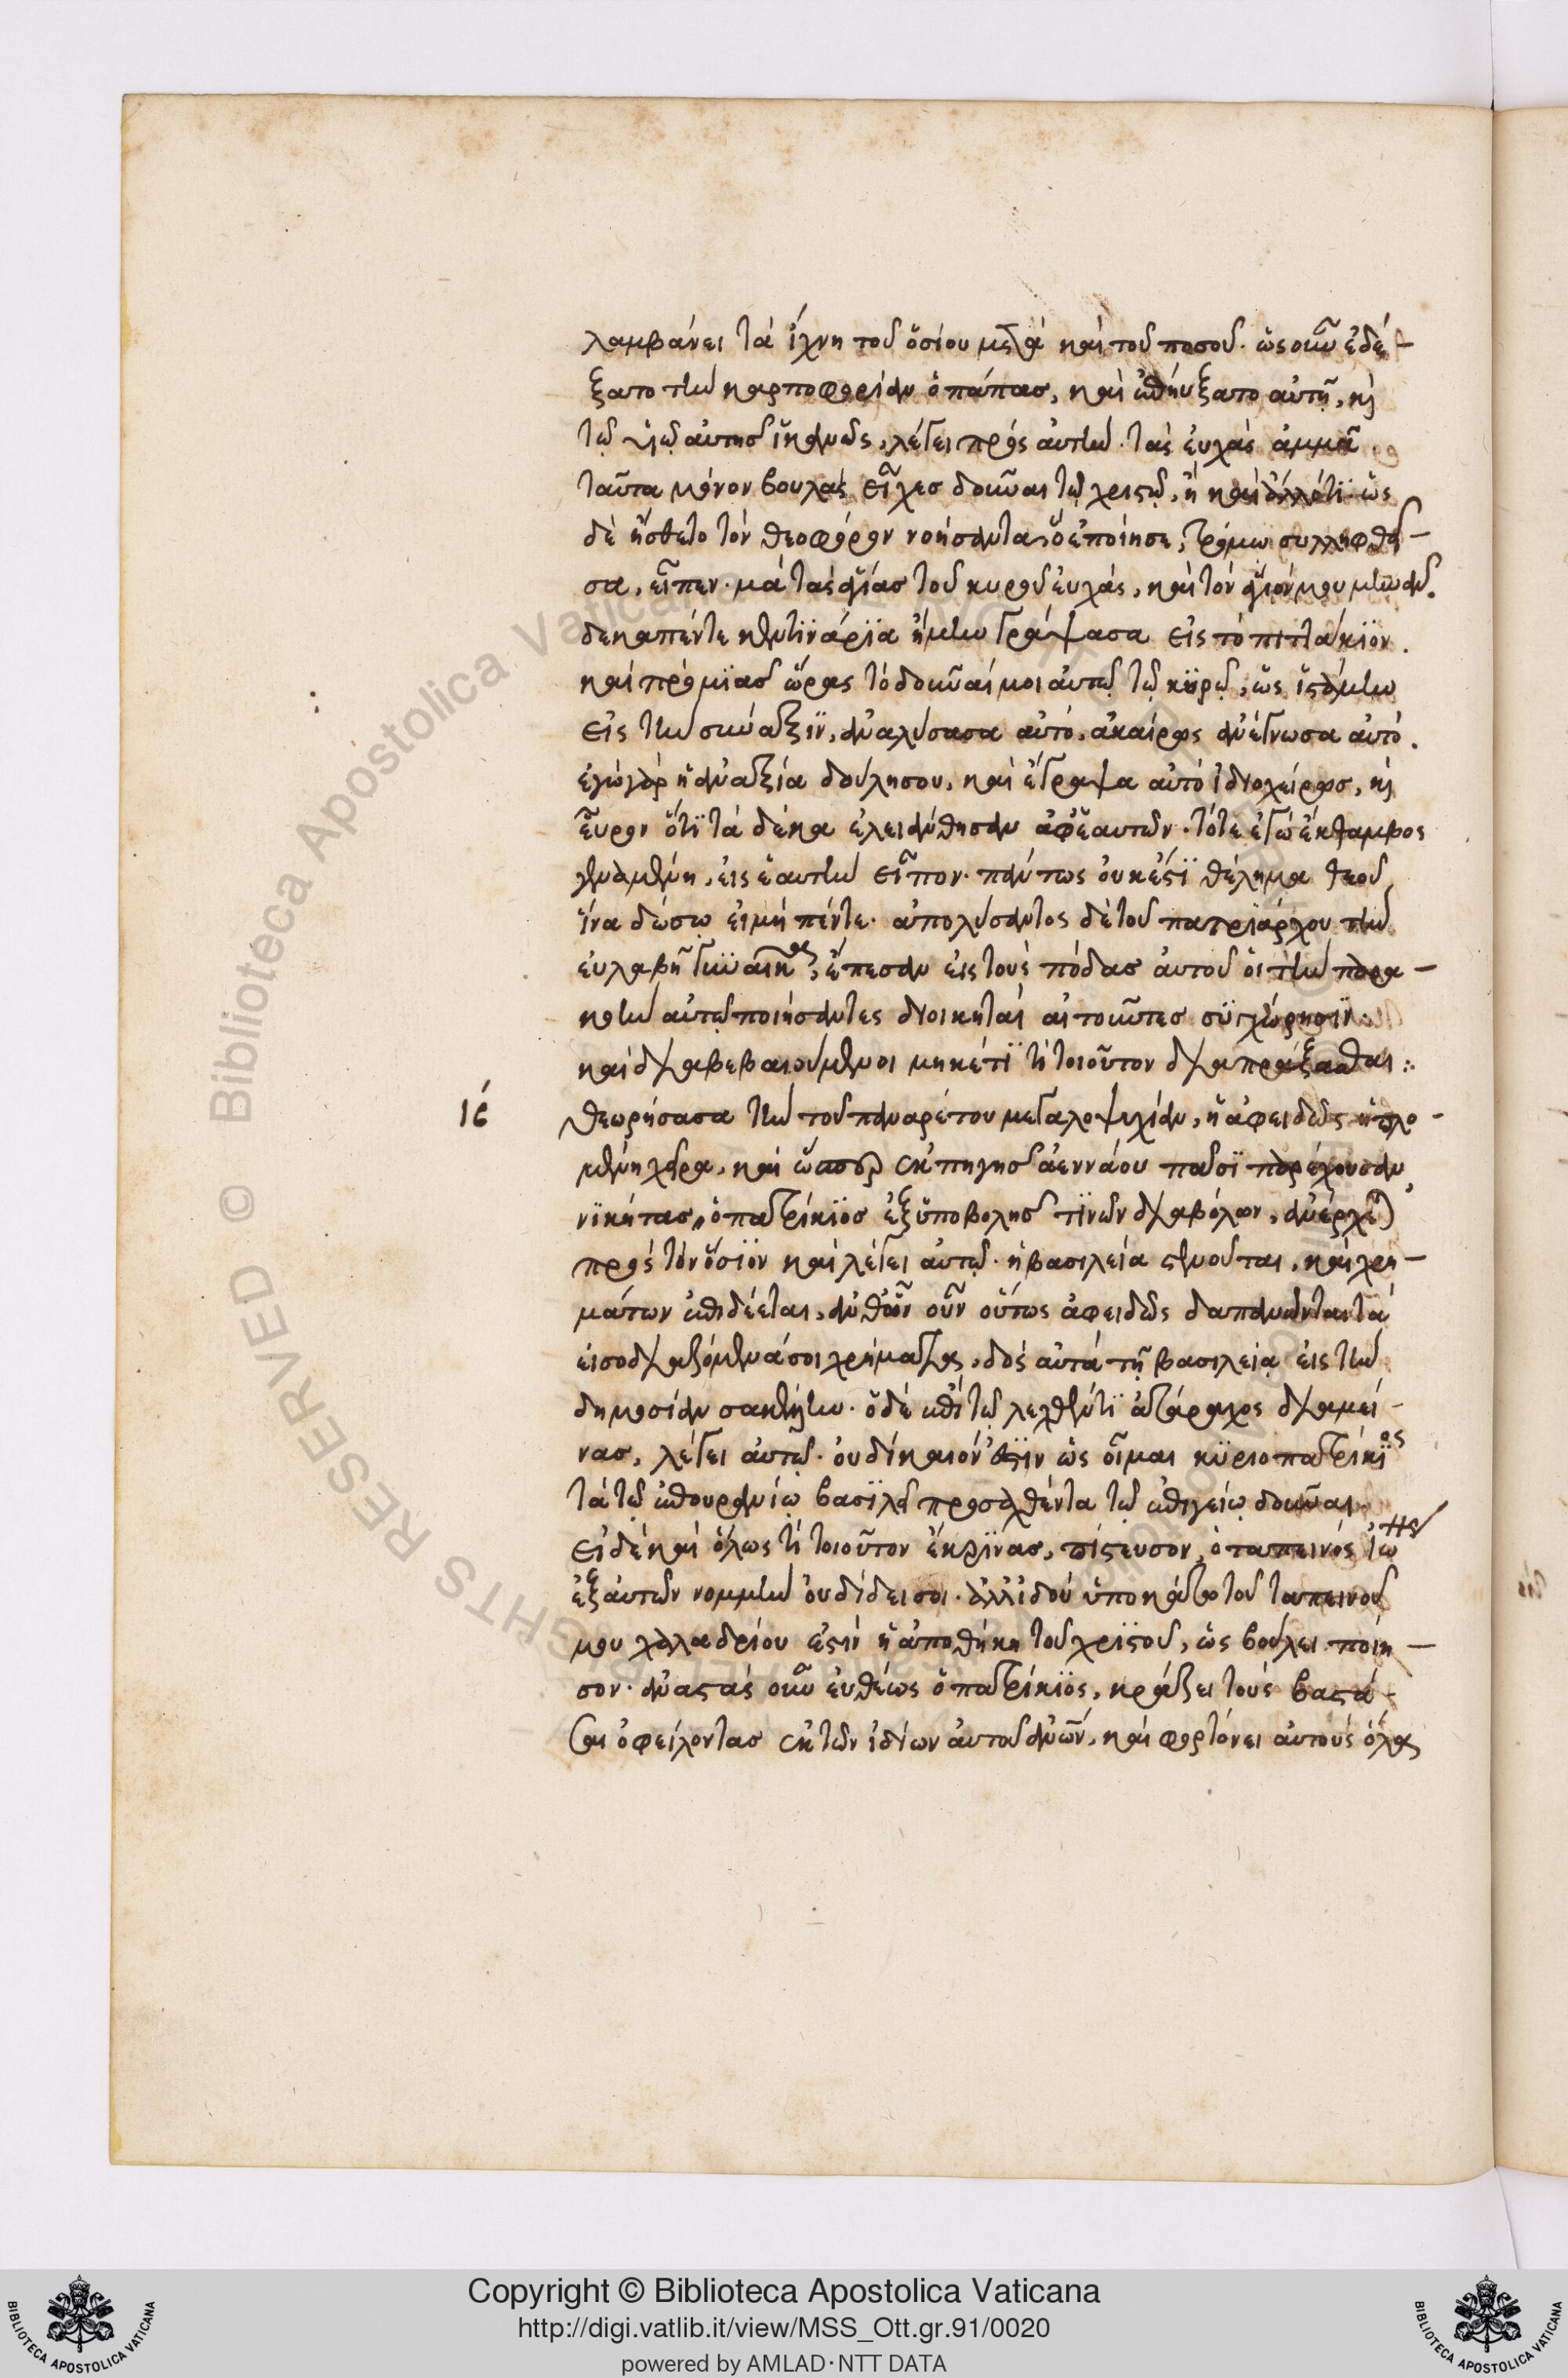 λαμβάνει τὰ ἴχνη τοῦ ὁσίου μετὰ καὶ τοῦ ποσοῦ. ὡς οὖν ἐδέ-
ξατο τὴν καρποφορίαν ὁ πάπας, καὶ ἐπηύξατο αὐτῇ, κὶ
τῷ υἱῷ αὐτῆς ἱκανῶς, λέγει πρὸς αὐτήν. τὰς εὐχὰς ἀμμᾶ
ταῦτα μόνον βουλὰς εἶχες δοῦναι τῷ χριστῷ, ἢ καὶ ἄλλό τϊ. ὡς
δὲ ᾔσθετο τὸν θεοφόρον νοήσαντα ὃ ἐποίησε, τρόμω συλληφθεῖ-
σα, εἶπεν. μὰ τὰς ἁγίας τοῦ κυροῦ εὐχὰς, καὶ τὸν ἅγιόν μου μηνᾶν.
δεκαπέντε κεντϊνάρϊα ἤμην γράψασα εἰς τὸ πιττάκϊον.
καὶ πρὸ μϊᾶς ὥρας τὸ δοῦναί μοι αὐτῷ τῷ κϋρῷ, ὡς ἱστάμην
εἰς τὴν σύναξϊν, ἀναλύσασα αὐτό, ἀκαίρως ἀνέγνωσα αὐτό.
ἐγὼ γὰρ ἡ ἀναξία δούλη σου, καὶ ἔγραψα αὐτὸ ἰδιοχείρως, κὶ
εὗρον ὅτϊ τὰ δέκα ἐλειάνθησαν ἀφ' ἑαυτῶν. τότε ἐγὼ ἔκθαμβος
γεναμένη, εἰς ἑαυτὴν εἶπον. πάντως οὐκ ἔστϊ θέλημα θεοῦ
ἵνα δώσω εἰ μὴ πέντε. ἀπολύσαντος δὲ τοῦ πατριάρχου τὴν
εὐλαβῆ γυναῖκα, ἔπεσαν εἰς τοὺς πόδας αὐτοῦ οἱ τὴν παρα-
κοὴν αὐτῷ ποιήσαντες διοικηταὶ αἰτοῦντες συϊχώρησϊν.
καὶ διαβεβαιούμενοι μηκέτϊ τὶ τοιοῦτον διαπράξασθαι :.
ιέ Θεωρήσασα τὴν τοῦ παναρέτου μεγαλοψυχίαν, ἡ ἀφειδῶς ἡπλο-
μένη χεῖρα, καὶ ὥσπερ ἐκ πηγῆς ἀεννάου πᾶσϊ παρέχουσαν
νϊκήτας, ὁ πατρίκϊος ἐξ ὑποβολῆς τϊνῶν διαβόλων, ἀνέρχεται
πρὸς τὸν ὅσϊον καὶ λέγει αὐτῷ. ἡ βασιλεία στενοῦται, καὶ χρη-
μάτων ἐπιδέεται, ἀνθ' ὧν οὖν οὕτως ἀφειδῶς δαπανῶνται τὰ
εἰσοδιαζόμενά σοι χρήματα, δὸς αὐτὰ τῇ βασιλείᾳ εἰς τὴν
δημοσίαν σακέλλην. ὁ δὲ ἐπὶ τῷ λεχθέντϊ ἀτάραχος διαμεί-
νας, λέγει αὐτῷ. οὐ δίκαιόν ἐστϊν ὡς οἶμαι κϋριοπατρίκϊος
τὰ τῷ ἐπουρανίῳ βασϊλεῖ προσαχθέντα τῷ ἐπιγείῳ δοῦναι.
εἰ δὲ καὶ ὅλως τὶ τοιοῦτον ἔκρϊνας, πίστευσον, ὁ ταπεινὸς ἰωάννης
ἐξ αὐτῶν νομμὴν οὐ δίδει σοι. ἀλλ' ἰδοὺ ὑποκάτω τοῦ ταπεινοῦ
μου χαλαδρίου ἐστὶν ἡ ἀποθήκη τοῦ χρϊστοῦ, ὡς βούλει ποίη-
σον. ἀναστὰς οὖν εὐθέως ὁ πατρίκϊος, κράζει τοὺς βαστά-
σαι ὀφείλοντας ἐκ τῶν ἰδίων αὐτοῦ ἀνῶν, καὶ φορτόνει αὐτοὺς ὅλα
Copyright © Biblioteca Apostolica Vaticana
http://digi.vatlib.it/view/MSS_Ott.gr.91/0020
powered by AMLAD·NTT DATA